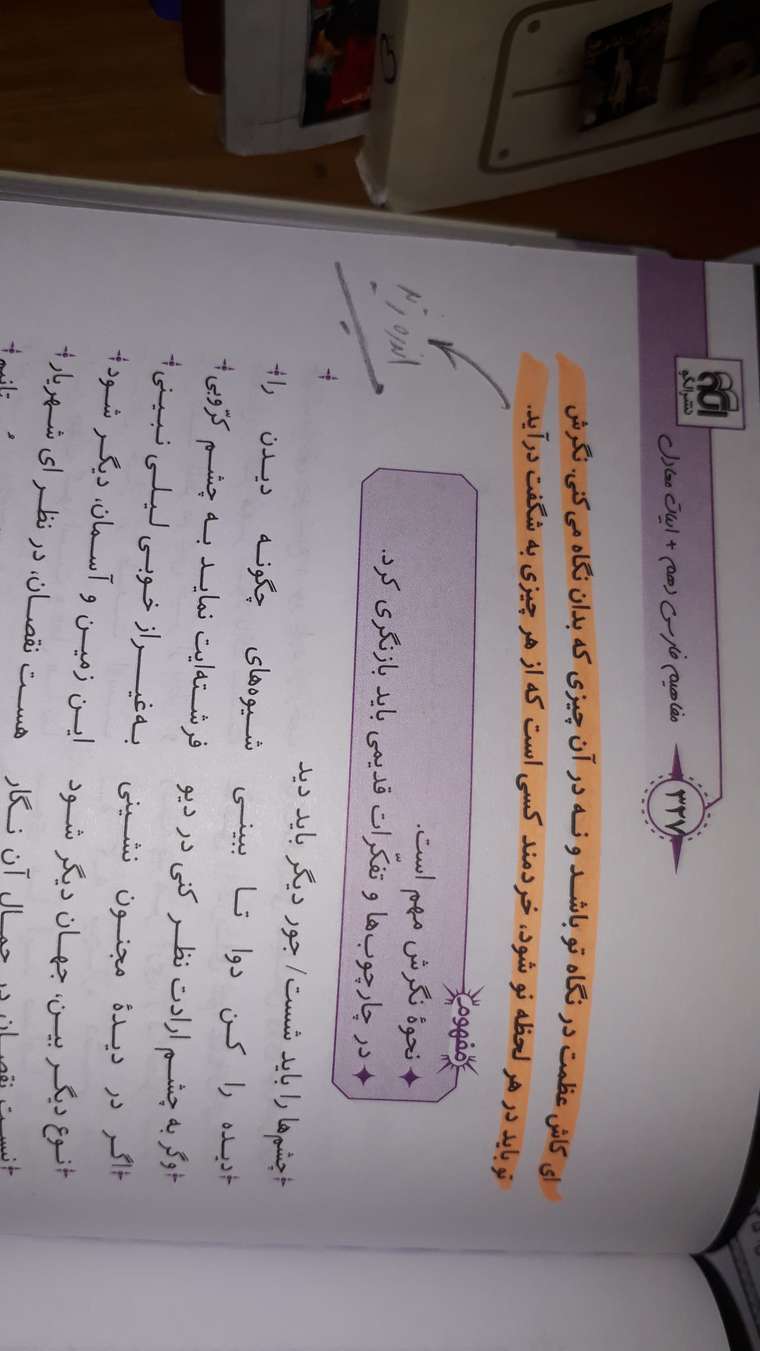 نشر الگو
مفاهیم فارسی دهم + ابیات معادل
۳۲۷
ای کاش عظمت در نگاه تو باشد و نه در آن چیزی که بدان نگاه می‌کنی. نگرش
نو باید در هر لحظه نو شود، خردمند کسی است که از هر چیزی به شگفت درآید.
آندره ژید
مفهوم
نحوهٔ نگرش مهم است.
در چارچوب‌ها و تفکّرات قدیمی باید بازنگری کرد.
چشم‌ها را باید شست/ جور دیگر باید دید
دیده را کن دوا تا ببینی شیوه‌های چگونه دیدن را
وگر به چشم ارادت نظر کنی در دیو فرشته‌ایت نماید به چشم کرّوبی
اگر در دیدهٔ مجنون نشینی به‌غیر از خوبی لیلی نبینی
نوع دیگر بین، جهان دیگر شود این زمین و آسمان، دیگر شود
نیست نقصان در جمال آن نگار هست نقصان، در نظر ای شهریار